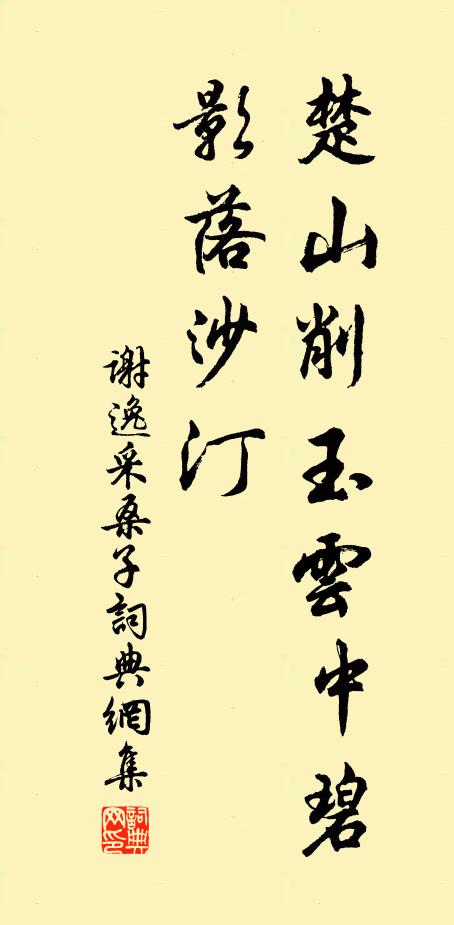 楚山削玉雲中碧
影落沙汀
謝逸采桑子詞典網集
詞典
网印